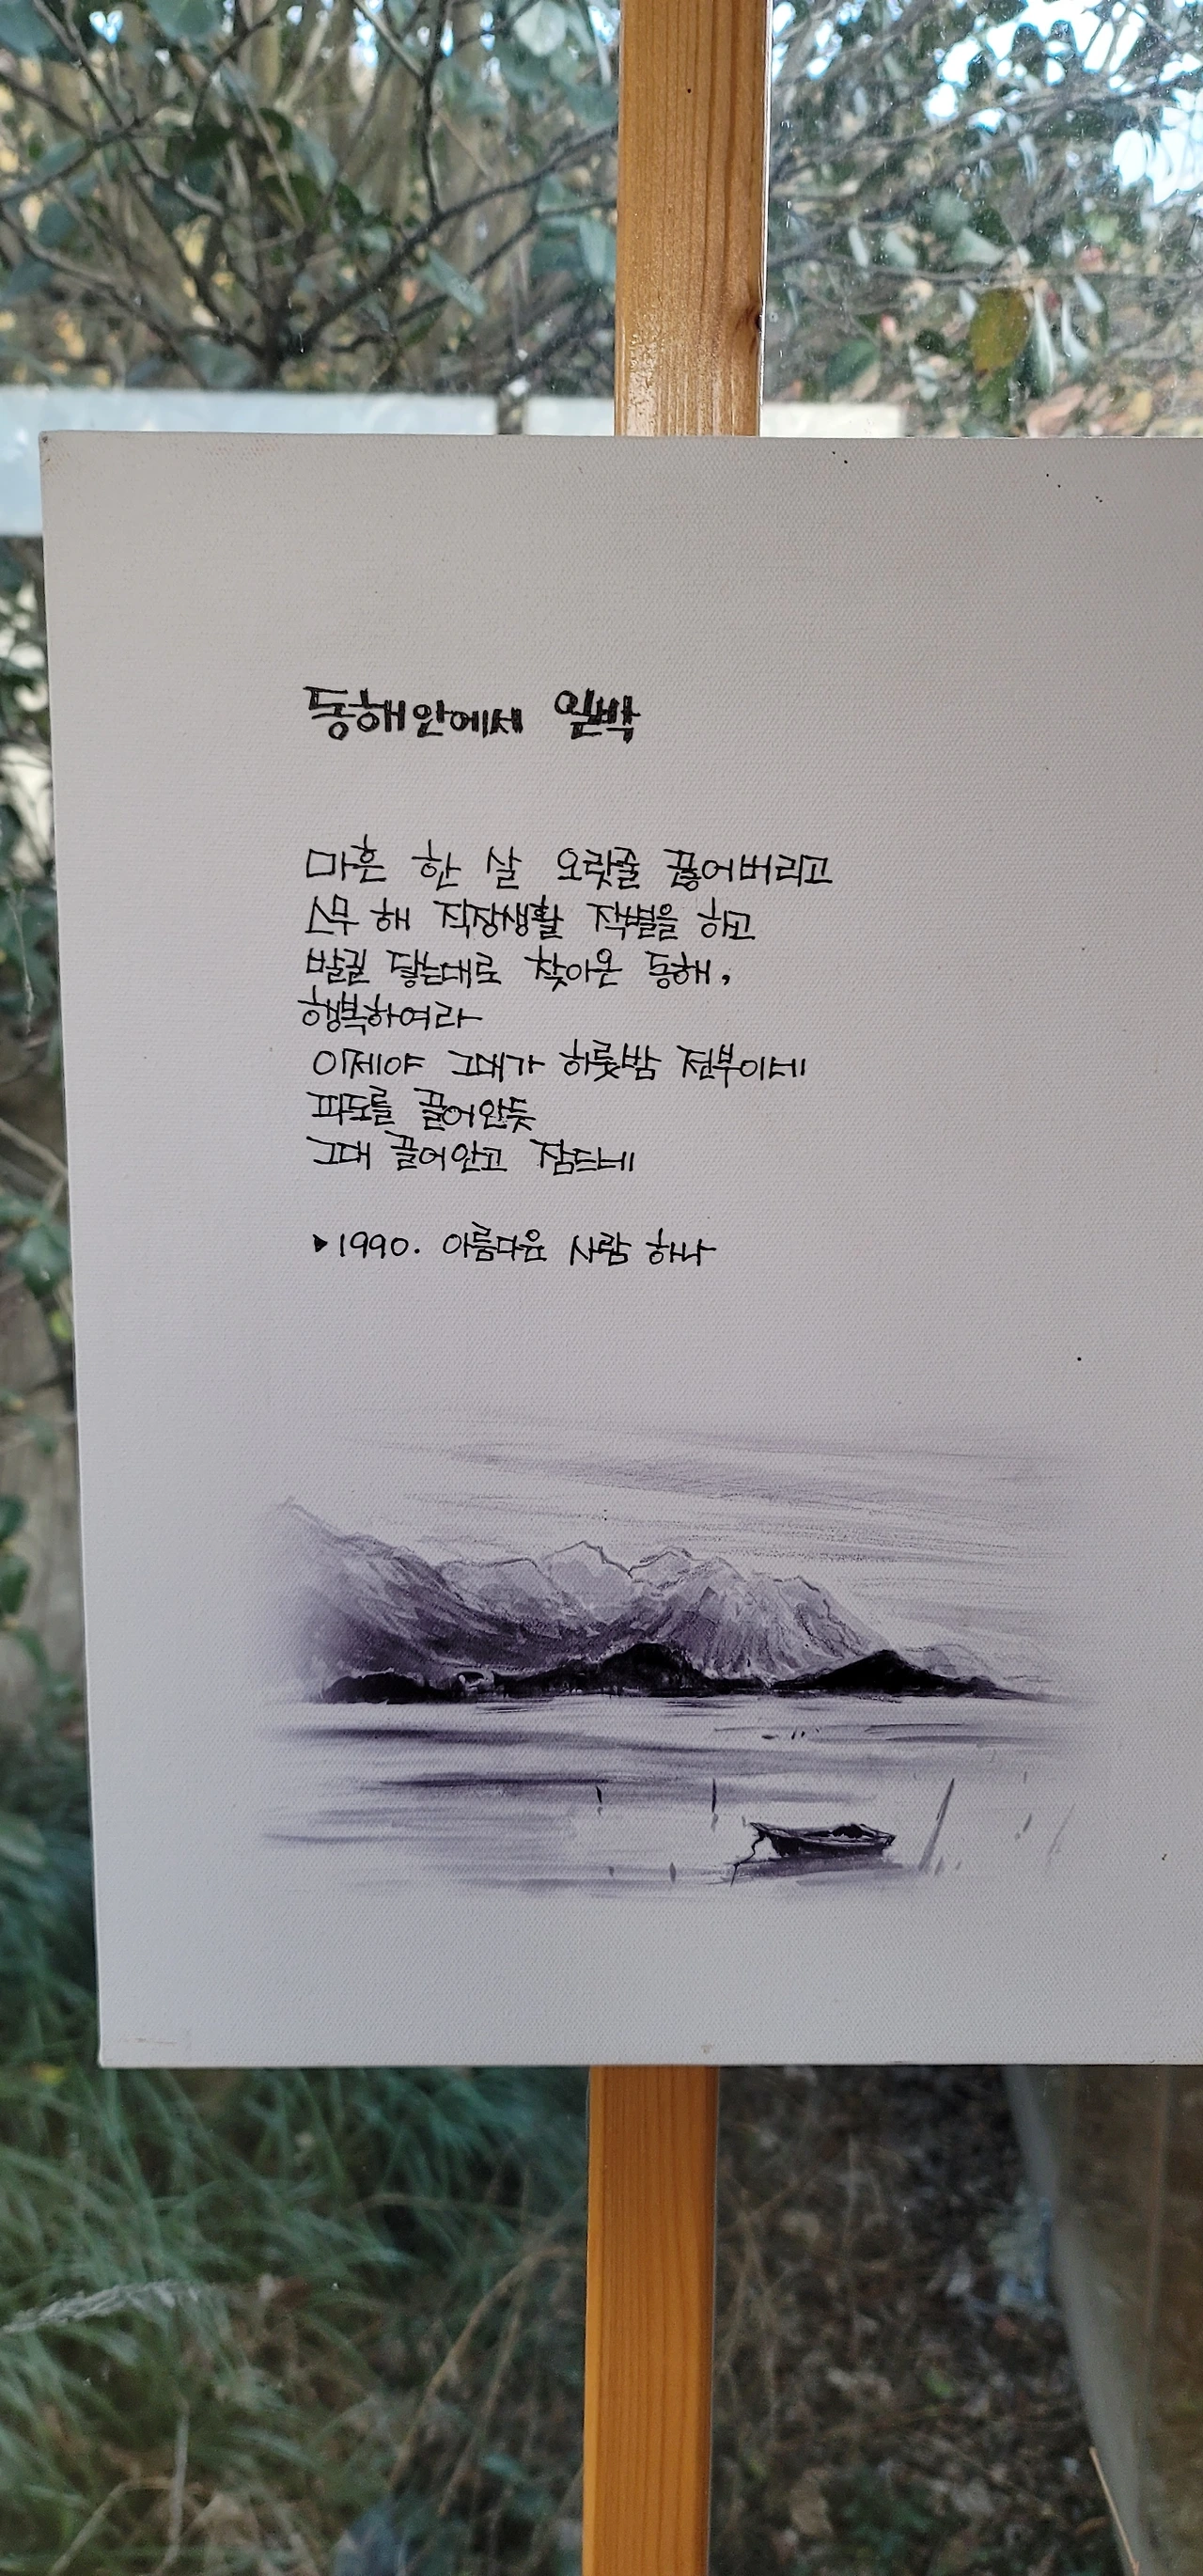 동해안에서 일박
마흔 한 살 오랏줄 끊어버리고
스무 해 직장생활 작별을 하고
발길 닿는대로 찾아온 동해,
행복하여라
이제야 그대가 하룻밤 전부이네
파도를 끌어안듯
그대 끌어안고 잠드네
▶1990. 아름다운 사람 하나